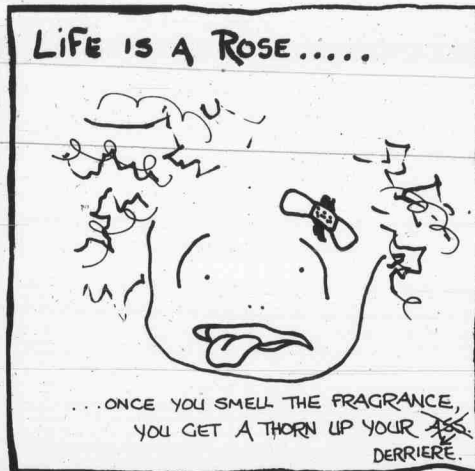 LiFE IS A ROSE.....
...ONCE YOU SMELL THE FRAGRANCE,
YOU GET A THORN UP YOUR ASS.
DERRIERE.